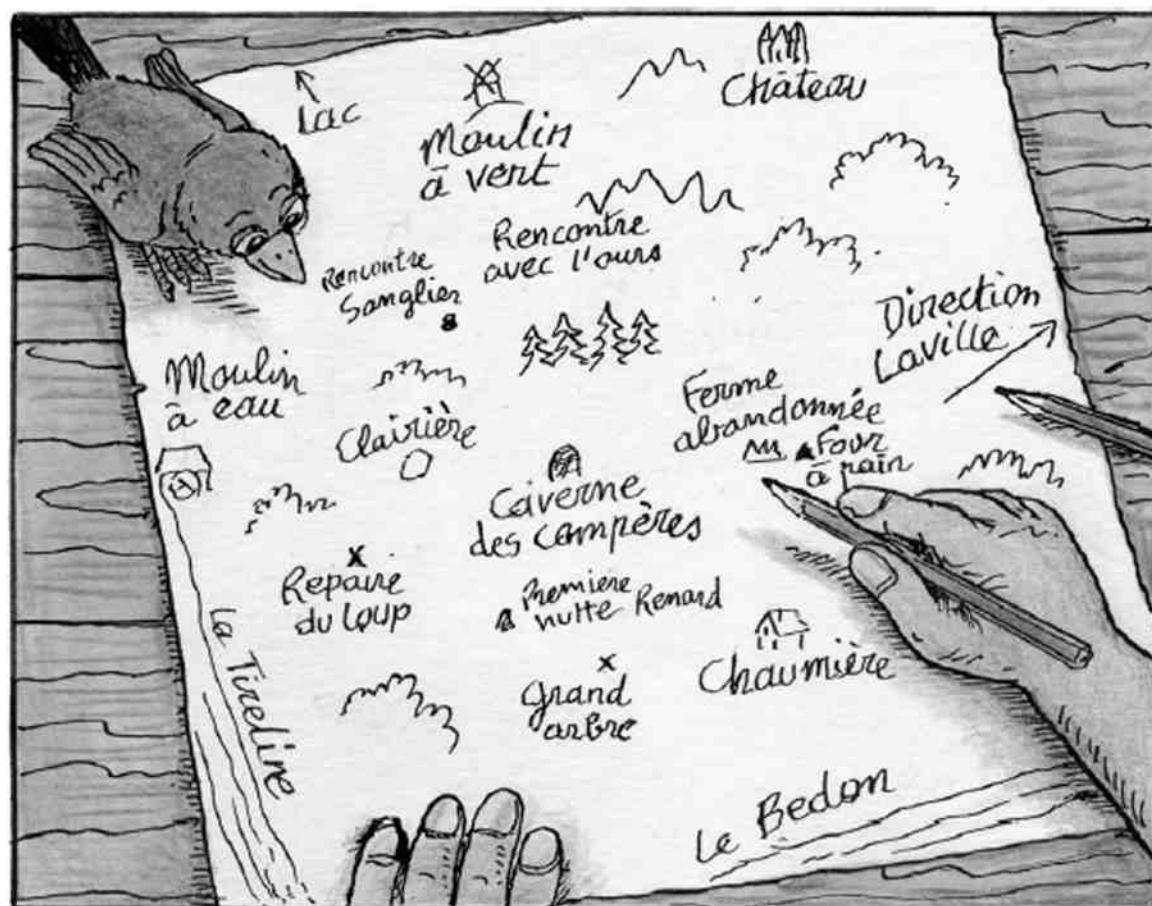 Lac
Moulin
à vert
Château
Rencontre
avec l'ours
Rencontre
Sanglier
Direction
Laville
Moulin
à eau
Clairière
Ferme
abandonnée
Four
à pain
Caverne
des compères
Repaire
du Loup
Première
hutte Renard
Grand
arbre
Chaumière
La Tirelire
Le Bedon